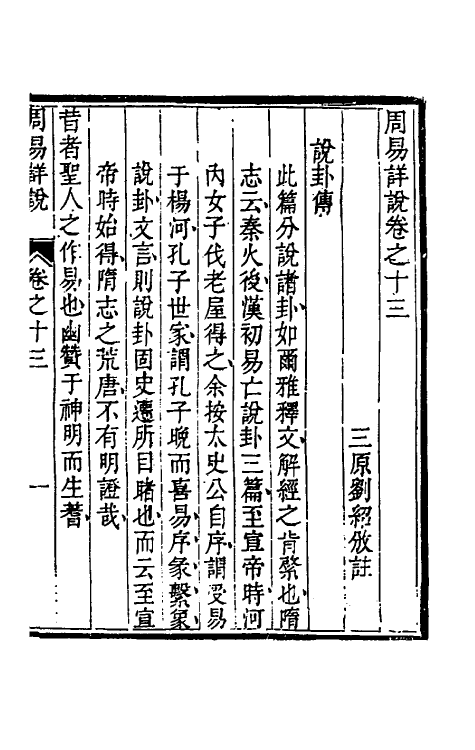 周易詳說卷之十三
三原劉紹攽註
說卦傳
此篇分說諸卦如爾雅釋文解經之肯綮也隋
志云秦火後漢初易亡說卦三篇至宣帝時河
內女子伐老屋得之余按太史公自序謂受易
于楊河孔子世家謂孔子晚而喜易序彖繫象
說卦文言則說卦固史遷所目睹也而云至宣
帝時始得隋志之荒唐不有明證哉
昔者聖人之作易也幽贊于神明而生蓍
周易詳說 卷之十三 一